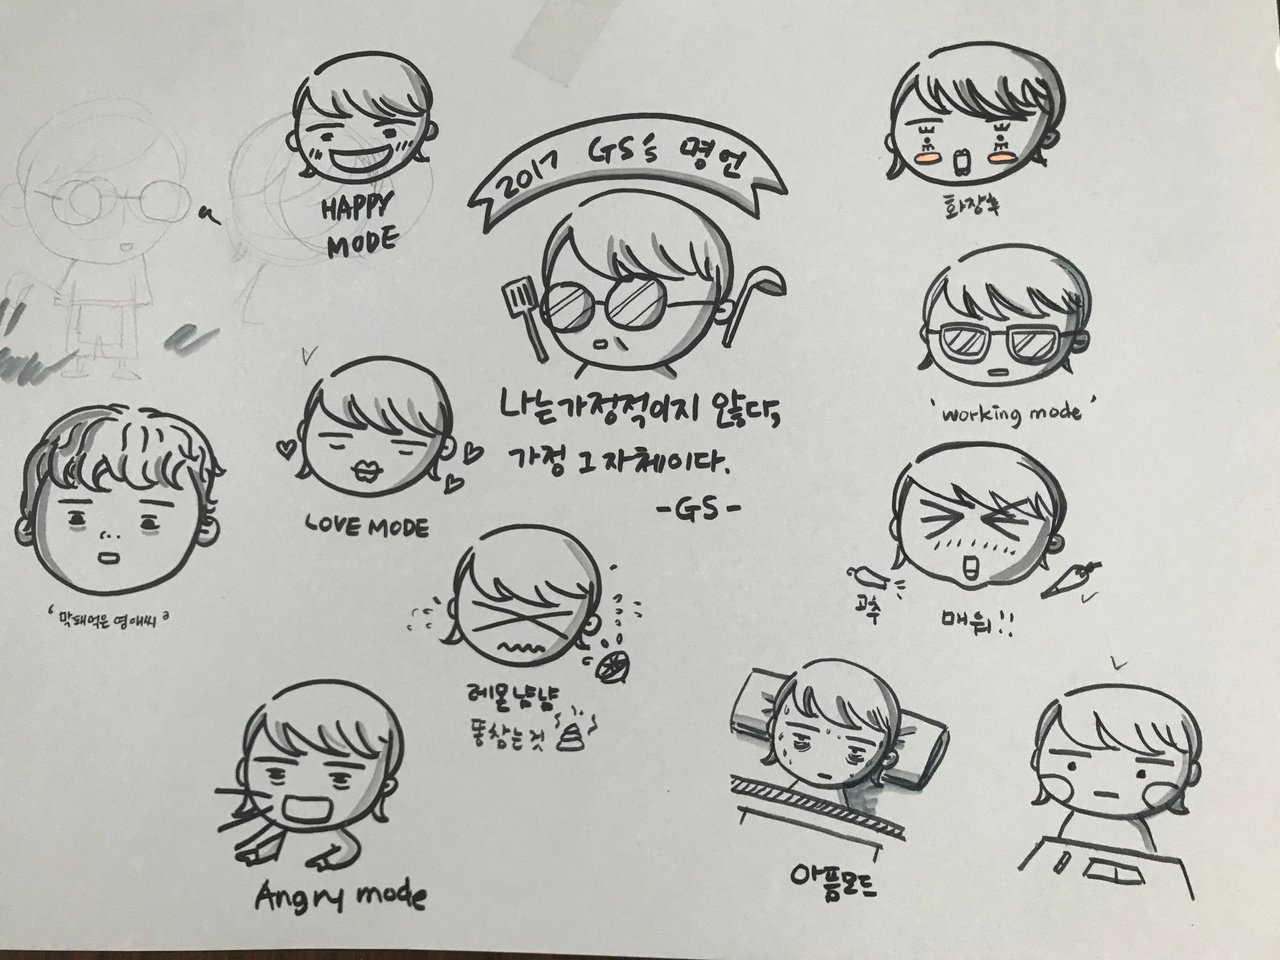 HAPPY
MODE
2017 GS's 명언
화장중
나는 가정적이지 않다,
가정 그 자체이다.
-GS-
'working mode'
LOVE MODE
'막돼먹은 영애씨'
고추
매워!!
레몬냠냠
똥참는것
Angry mode
아픔모드